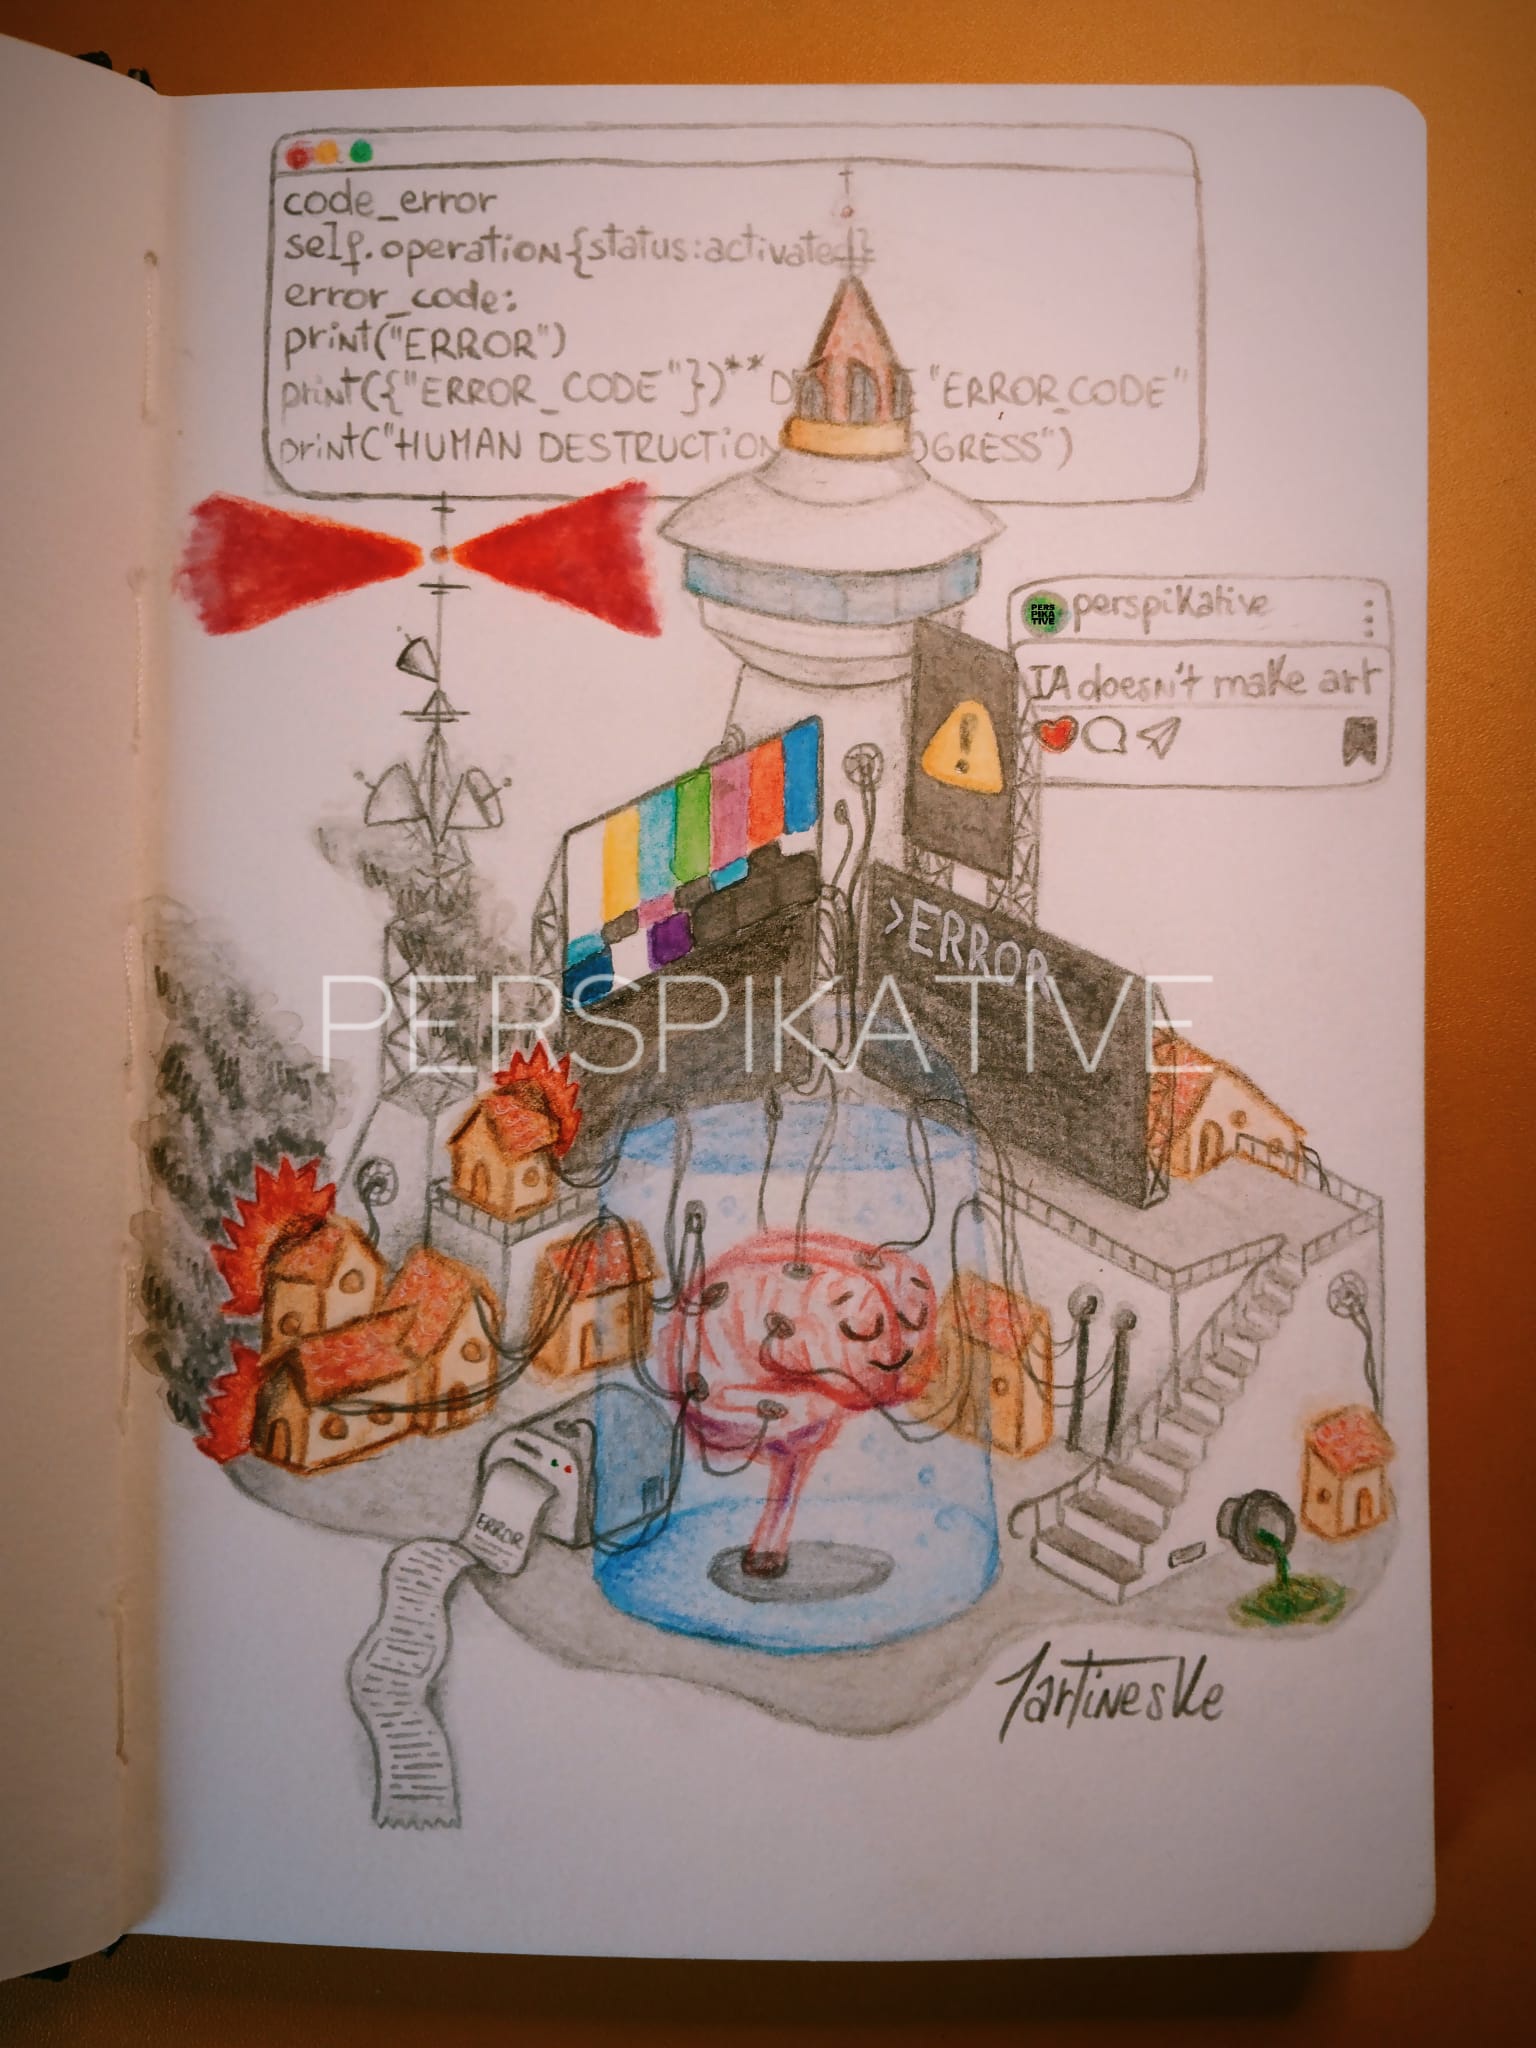 code_error
self.operation{status:activated}
error_code:
print("ERROR")
print({"ERROR_CODE"})** "ERROR_CODE"
print("HUMAN DESTRUCTION OGRESS")
PERS
PIKA
TIVE
perspikative
IA doesn't make art
!
>ERROR
PERSPIKATIVE
ERROR
Martineske